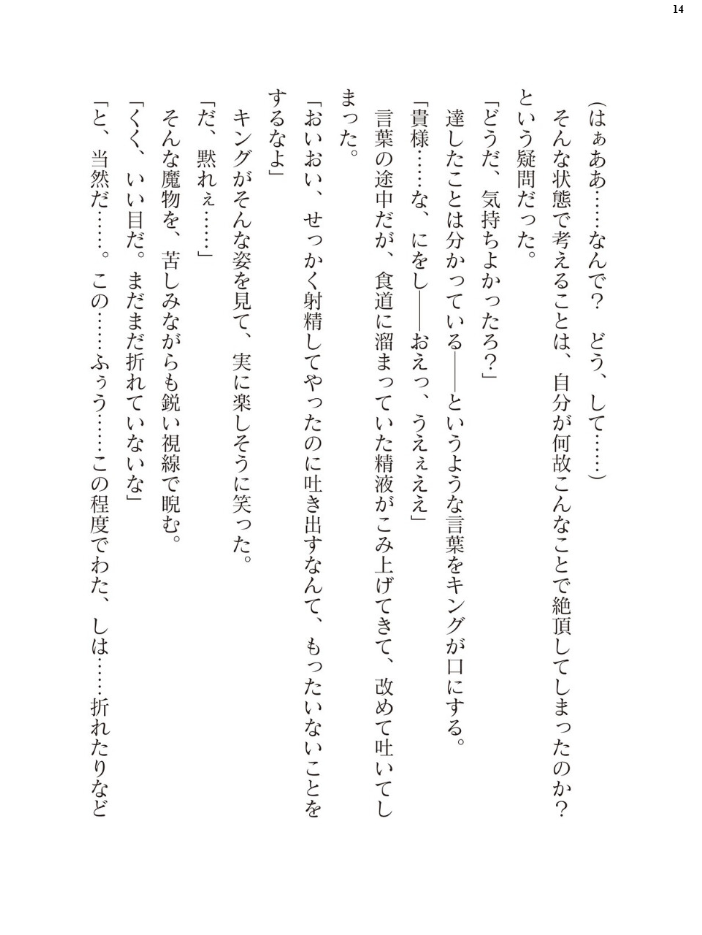 14
(はぁああ……なんで？　どう、して……)
　そんな状態で考えることは、自分が何故こんなことで絶頂してしまったのか？
という疑問だった。
「どうだ、気持ちよかったろ？」
　達したことは分かっている――というような言葉をキングが口にする。
「貴様……な、にをし――おえっ、うえぇええ」
　言葉の途中だが、食道に溜まっていた精液がこみ上げてきて、改めて吐いてし
まった。
「おいおい、せっかく射精してやったのに吐き出すなんて、もったいないことを
するなよ」
　キングがそんな姿を見て、実に楽しそうに笑った。
「だ、黙れぇ……」
　そんな魔物を、苦しみながらも鋭い視線で睨む。
「くく、いい目だ。まだまだ折れていないな」
「と、当然だ……。この……ふぅう……この程度でわた、しは……折れたりなど